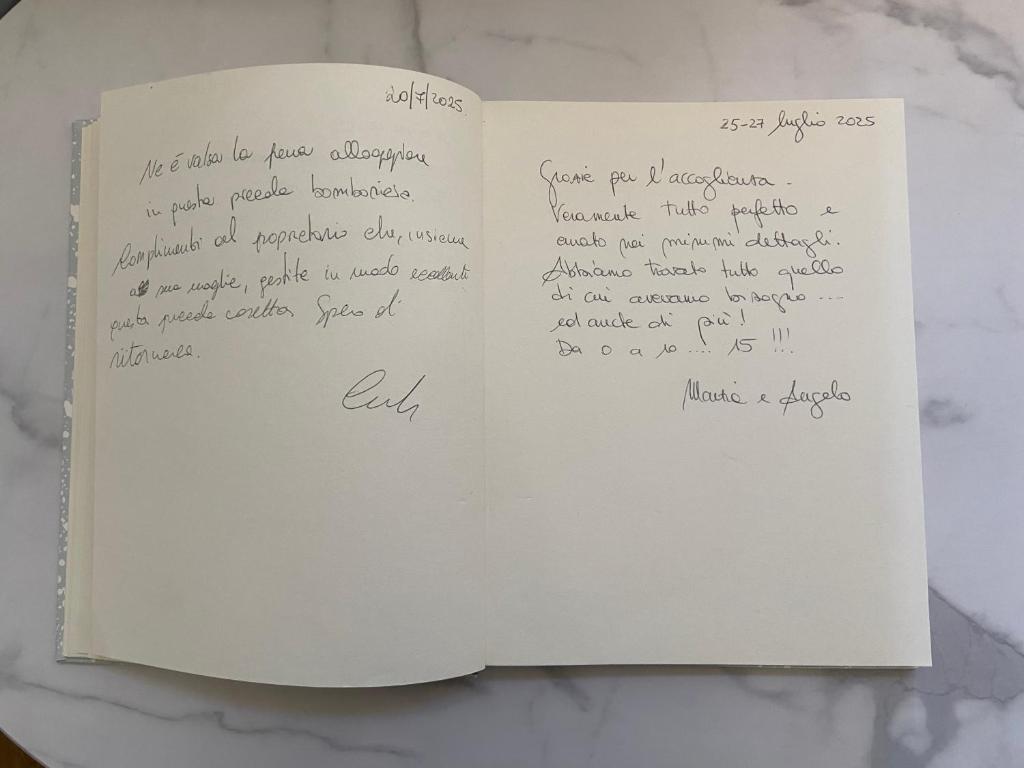 20/7/2025
Ne è valsa la pena alloggiare
in questa piccola bomboniera.
Complimenti al proprietario che, insieme
sua moglie, gestite in modo eccellente
questa piccola casetta Spero di
ritornare.
25-27 luglio 2025
Grazie per l'accoglienza.
Veramente tutto perfetto e
curato nei minimi dettagli.
Abbiamo trovato tutto quello
di cui avevamo bisogno ....
ed anche di più!
Da 0 a 10 .... 15 !!!
e Angelo